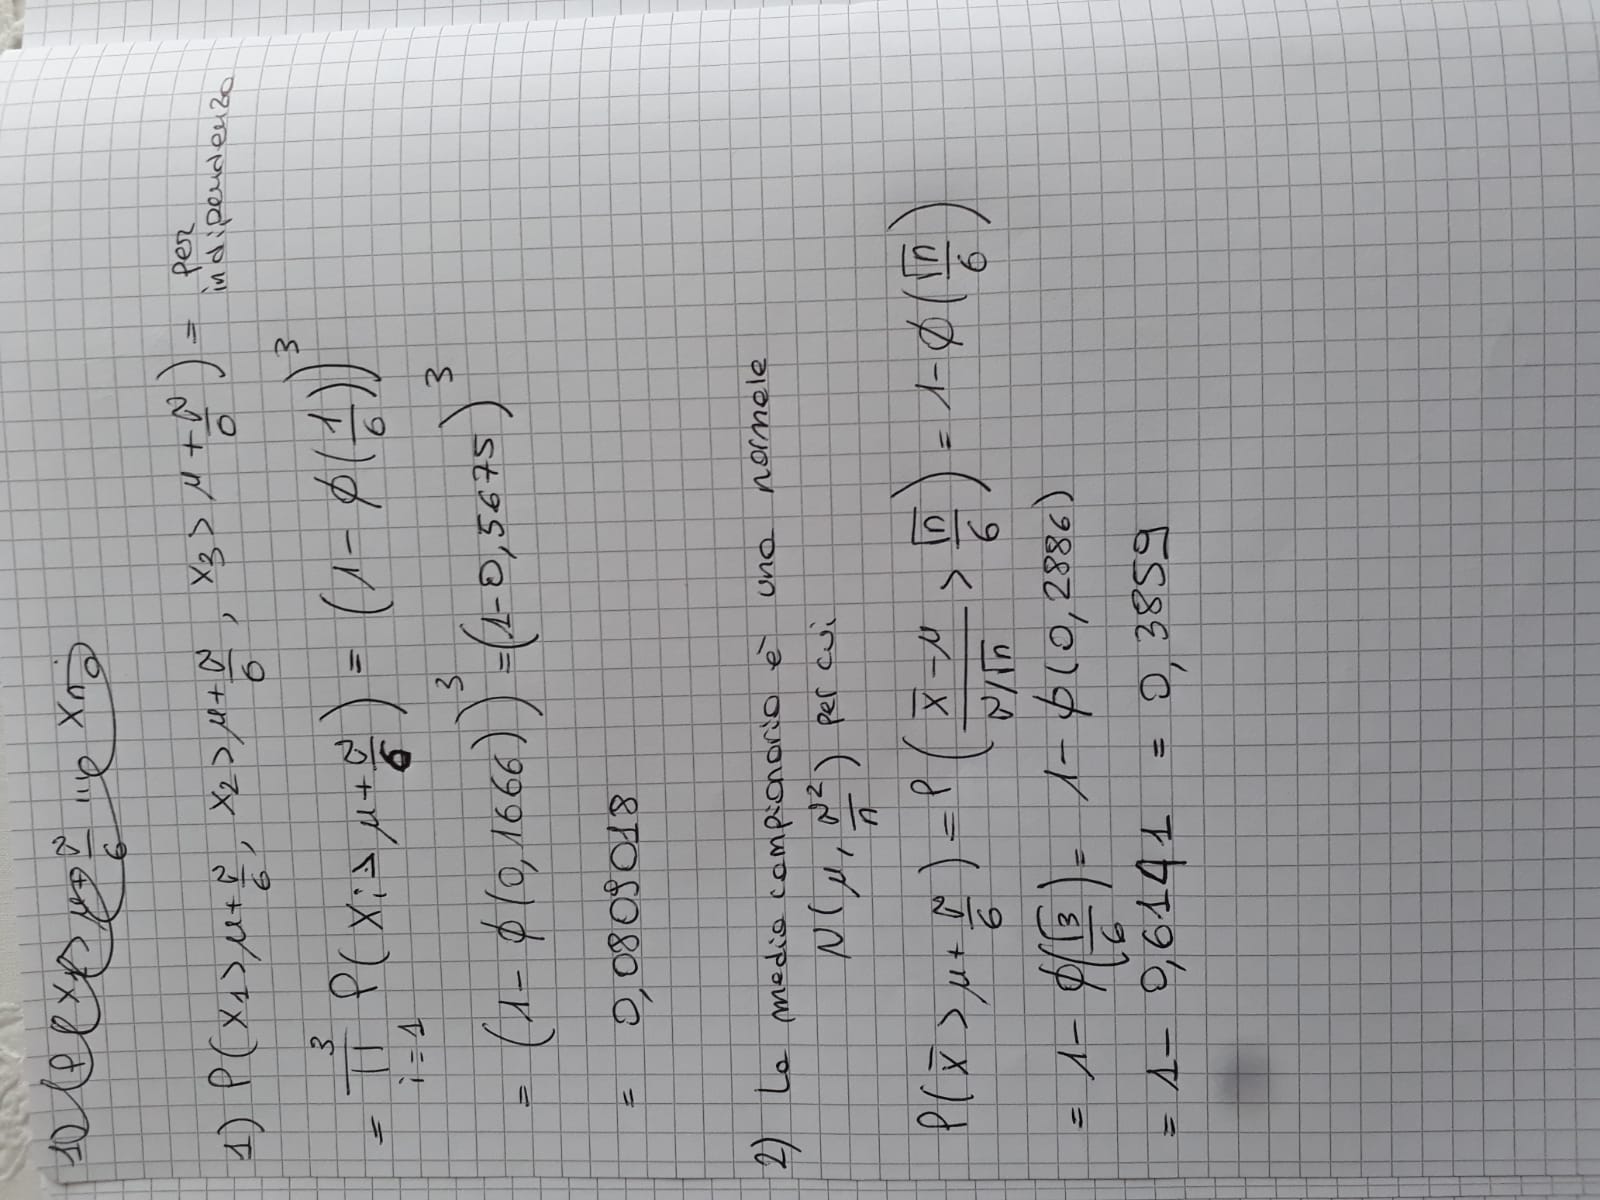 1) P(X1>μ+σ/6, X2>μ+σ/6, X3>μ+σ/6) = per indipendenza
= ∏ i=1 3 P(Xi>μ+σ/6) = (1-ϕ(1/6))^3
= (1-ϕ(0,1666))^3 = (1-0,5675)^3
= 0,0809018
2) La media campionaria è una normale
N(μ, σ²/n) per cui
P(X̅>μ+σ/6) = P((X̅-μ)/(σ/√n) > √n/6) = 1-ϕ(√n/6)
= 1-ϕ(√3/6) = 1-ϕ(0,2886)
= 1-0,6141 = 0,3859